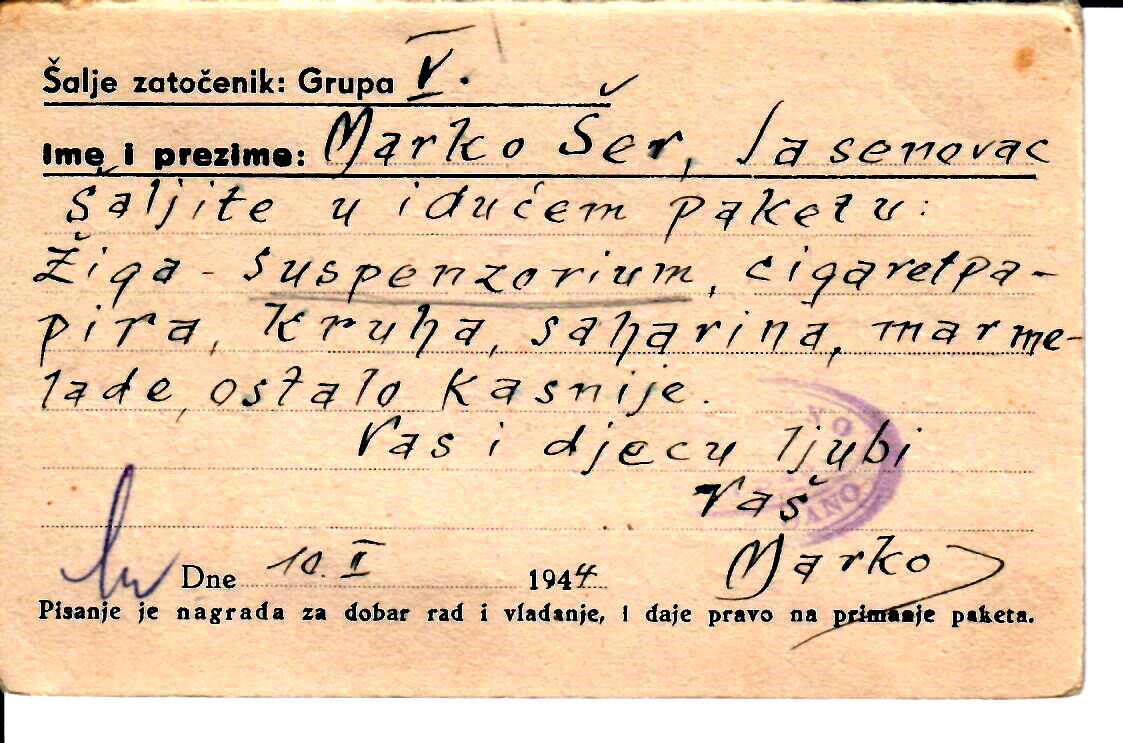 Šalje zatočenik: Grupa V.
Ime i prezime: Marko Šer, Jasenovac
Šaljite u idućem paketu:
Žiga - suspenzorium, cigaretpa-
pira, kruha, saharina, marme-
lade, ostalo kasnije.
Vas i djecu ljubi
Vaš
Marko
Dne 10. I 1944
Pisanje je nagrada za dobar rad i vladanje, i daje pravo na primanje paketa.